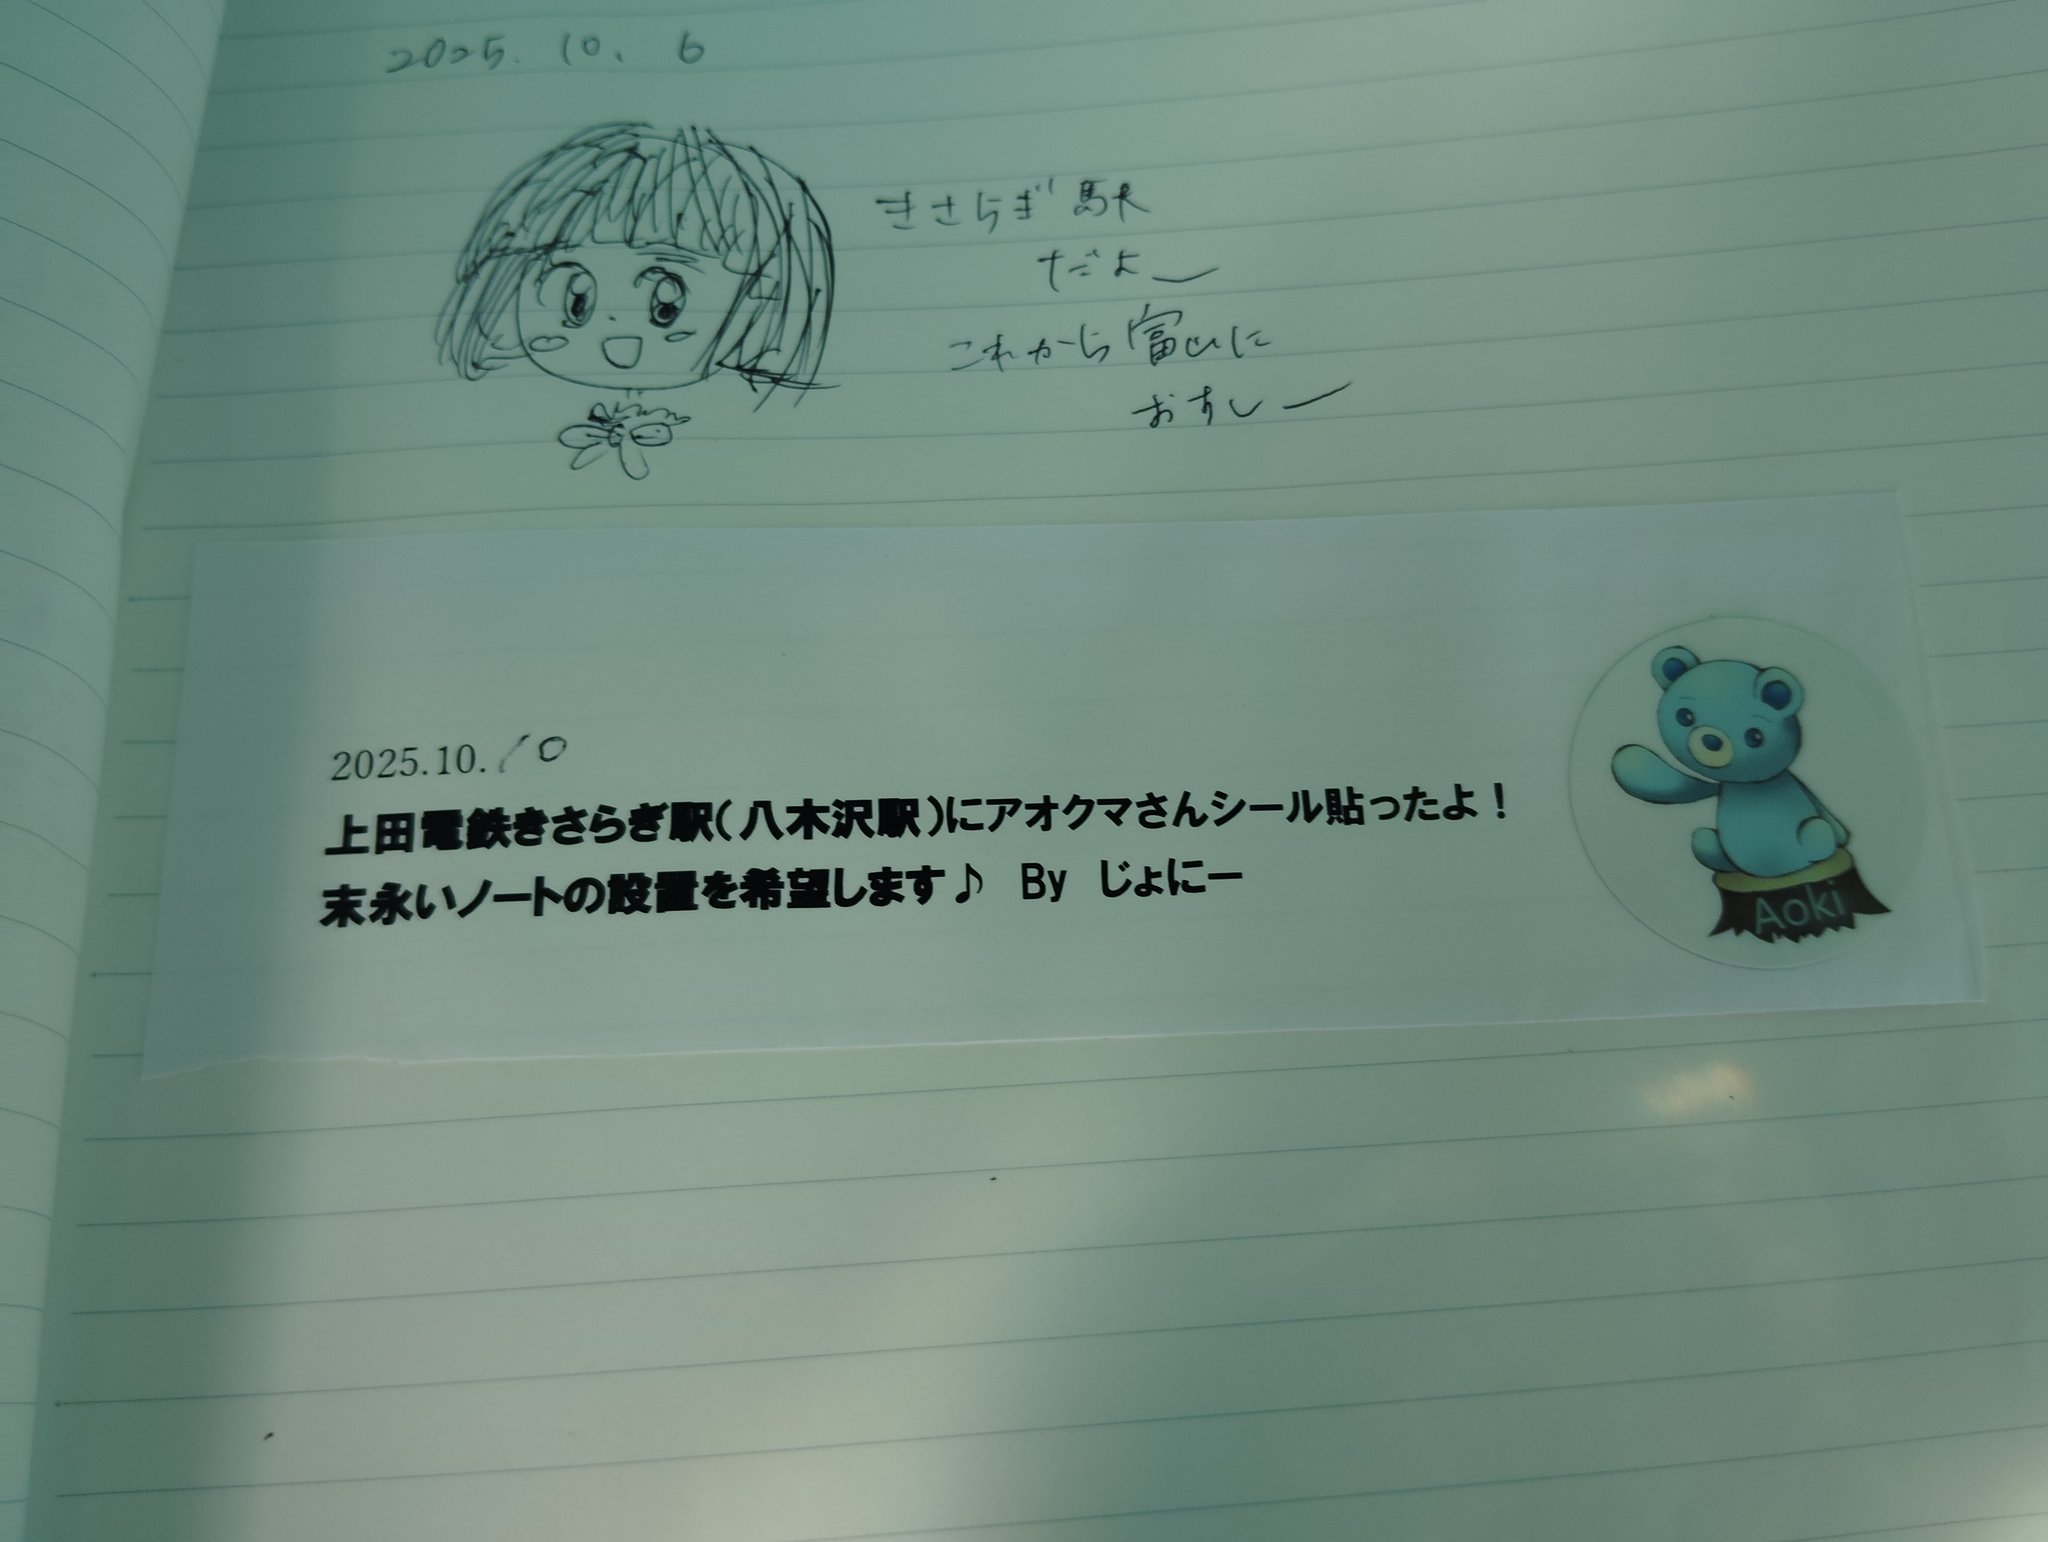 2025. 10. 6
きさらぎ駅
だよー
これから富山に
おすしー
2025.10.10
上田電鉄きさらぎ駅(八木沢駅)にアオクマさんシール貼ったよ!
末永いノートの設置を希望します♪ By じょにー
Aoki